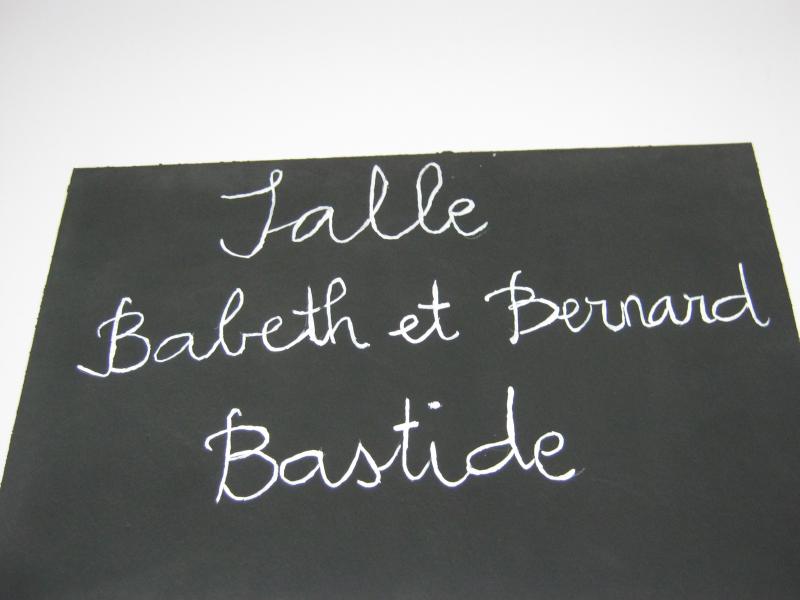 Salle
Babeth et Bernard
Bastide